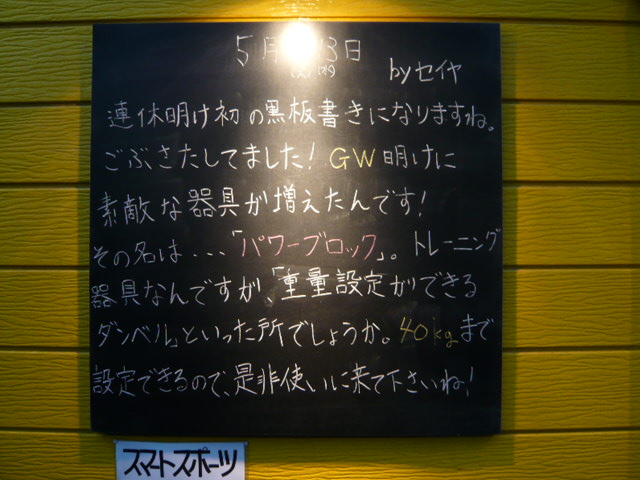 5月 3日
byセイヤ
連休明け初の黒板書きになりますね。
ごぶさたしてました!GW明けに
素敵な器具が増えたんです!
その名は...「パワーブロック」。トレーニング
器具なんですが、「重量設定ができる
ダンベル」といった所でしょうか。40kgまで
設定できるので、是非使いに来て下さいね!
スマートスポーツ